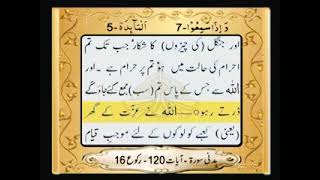 وَاِذَا سَمِعُوْا-7 اَلْمَآئِدَة-5
اور جنگل (کی چیزوں) کا شکار جب تک تم
احرام کی حالت میں ہو تم پر حرام ہے۔ اور
اللہ سے جس کے پاس تم (سب) جمع کئے جاؤ گے
ڈرتے رہو ○ اللہ نے عزت کے گھر
(یعنی) کعبے کو لوگوں کے لئے موجب قیام
مدنی سورۃ - آیات 120 - رکوع 16